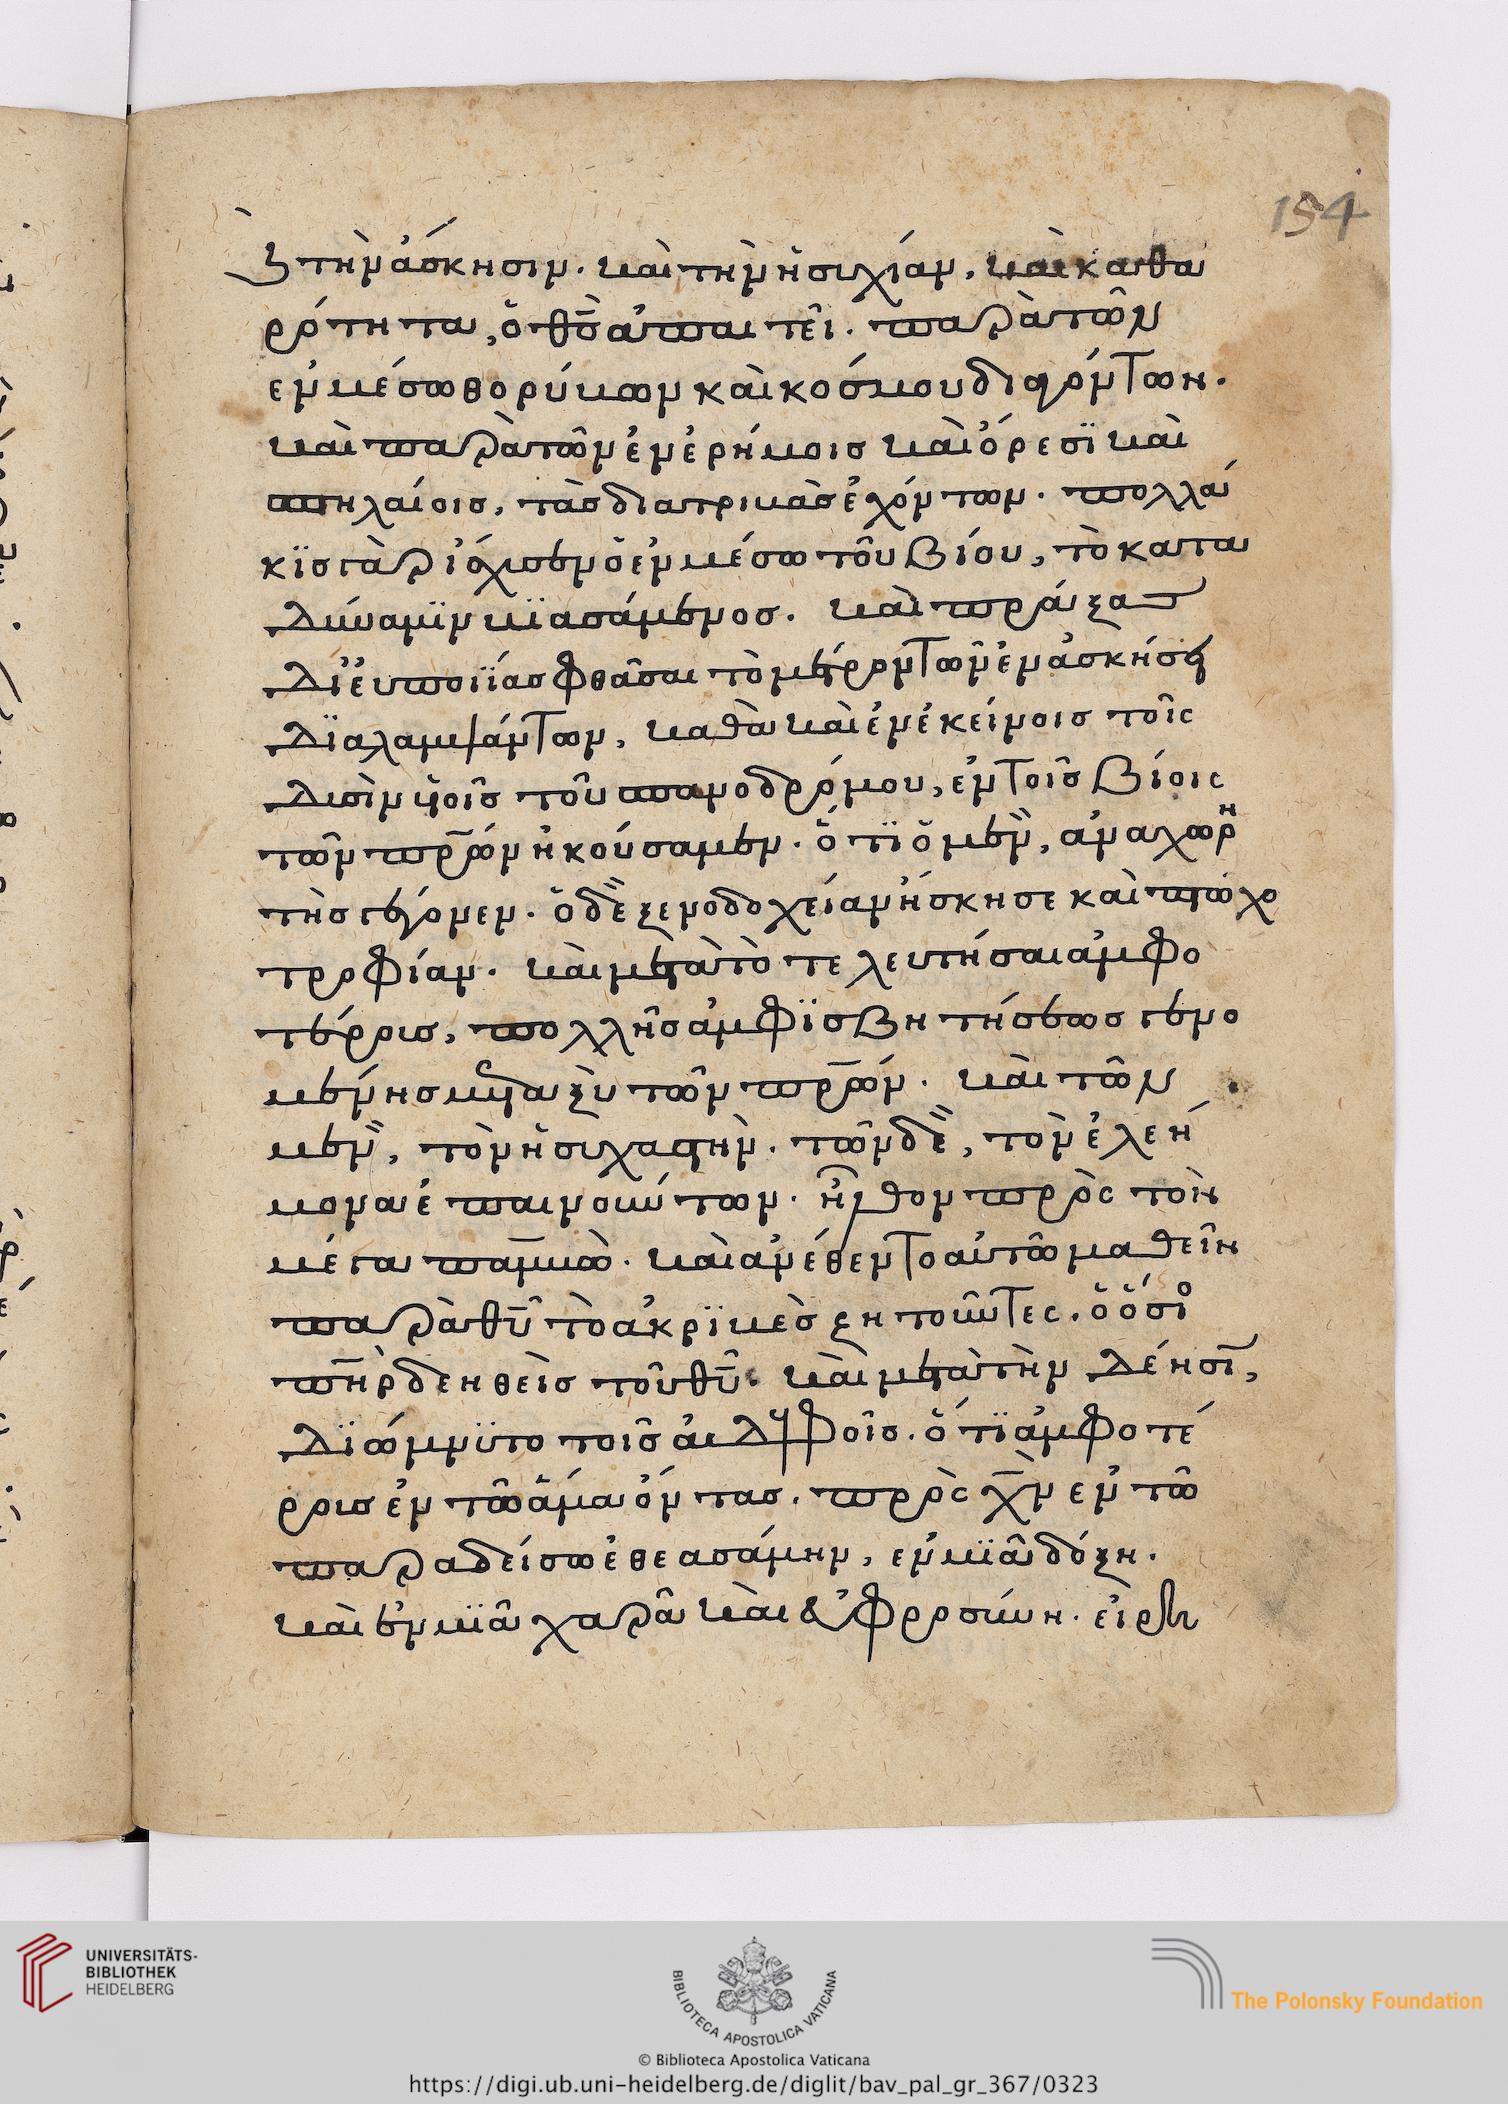 154
ξ τὴν ἄσκησιν. καὶ τὴν ἡσυχίαν, καὶ καθα
ρότητα, ὁ θς̄ ἀπαιτεῖ. παρὰ τῶν
ἐν μέσω θορύβων καὶ κόσμου διαγόντων.
καὶ παρὰ τῶν ἐν ἐρήμοις καὶ ὄρεσϊ καὶ
σπηλαίοις, τὰς διατριβὰς ἐχόντων. πολλά
κϊς γὰρ ἴσχυσεν ὁ ἐν μέσω τοῦ βίου, τὸ κατα
δύναμϊν βϊασάμενος. καὶ πράξας
δι' εὐποιΐας φθᾶσαι τὸ μέτρον τῶν ἐν ἀσκήσει
δϊαλαμψάντων, καθὰ καὶ ἐν ἐκείνοις τοῖς
δυσὶν υἱοῖς τοῦ σπανοδρόμου, ἐν τοῖς βίοις
τῶν πρ̄ων ἠκούσαμεν. ὅτϊ ὁ μὲν, ἀναχωρη
τὴς γέγονεν. ὁ δὲ ξενοδοχείαν ἤσκησε καὶ πτωχο
τροφίαν. καὶ μετὰ τὸ τελευτῆσαι ἀμφο
τέροις, πολλῆς ἀμφϊσβητήσεως γενο
μένης μεταξὺ τῶν πρ̄ων. καὶ τῶν
μὲν, τὸν ἡσυχαστὴν. τῶν δὲ, τὸν ἐλεή
μονα ἐπαινούντων. ἦλθον πρὸς τὸν
μέγα παμβὼ. καὶ ἀνέθεντο αὐτῶ μαθεῖν
παρὰ θῡ τὸ ἀκρϊβὲς ζητοῦντες. ὁ ὅσϊος
πη̄ρ δεηθεὶς τοῦ θῡ. καὶ μετὰ τὴν δέησῑ,
δϊώμνυτο τοῖς ἀδελφοῖς. ὅτϊ ἀμφοτέ
ροις ἐν τῶ ἅμα ὄντας. πρὸς χ̄ν ἐν τῶ
παραδείσω ἐθεασάμην, ἐν μϊᾶ δόξη.
καὶ ἐν μϊᾶ χαρᾶ καὶ εὐφροσύνη. εἰρη
UNIVERSITÄTS-
BIBLIOTHEK
HEIDELBERG
BIBLIOTECA APOSTOLICA VATICANA
The Polonsky Foundation
© Biblioteca Apostolica Vaticana
https://digi.ub.uni-heidelberg.de/diglit/bav_pal_gr_367/0323